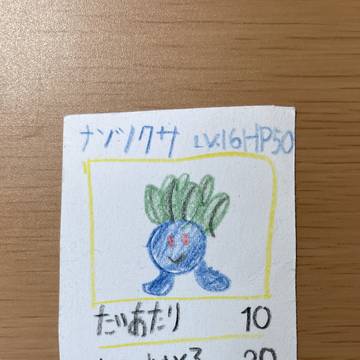 ナゾノクサ LV.16 HP50
たいあたり 10